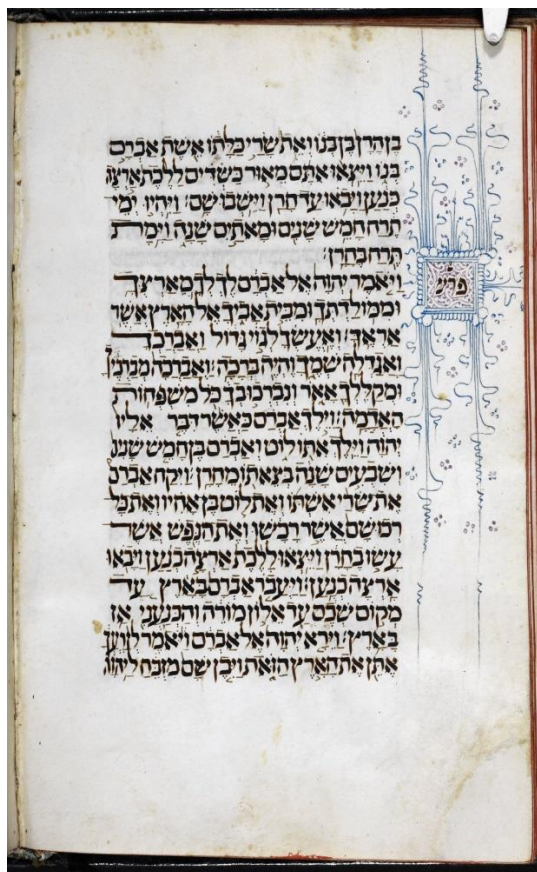 בן הרן בן בנו ואת שרי כלתו אשת אברם
בנו ויצאו אתם מאור כשדים ללכת ארצה
כנען ויבאו עד חרן וישבו שם׃ ויהיו ימי
תרח חמש שנים ומאתים שנה וימת
תרח בחרן׃
פרש
ויאמר יהוה אל אברם לך לך מארצך
וממולדתך ומבית אביך אל הארץ אשר
אראך׃ ואעשך לגוי גדול ואברכך
ואגדלה שמך והיה ברכה׃ ואברכה מברכיך
ומקללך אאר ונברכו בך כל משפחות
האדמה׃ וילך אברם כאשר דבר אליו
יהוה וילך אתו לוט ואברם בן חמש שנים
ושבעים שנה בצאתו מחרן׃ ויקח אברם
את שרי אשתו ואת לוט בן אחיו ואת כל
רכושם אשר רכשו ואת הנפש אשר
עשו בחרן ויצאו ללכת ארצה כנען ויבאו
ארצה כנען׃ ויעבר אברם בארץ עד
מקום שכם עד אלון מורה והכנעני אז
בארץ׃ וירא יהוה אל אברם ויאמר לזרעך
אתן את הארץ הזאת ויבן שם מזבח ליהוה